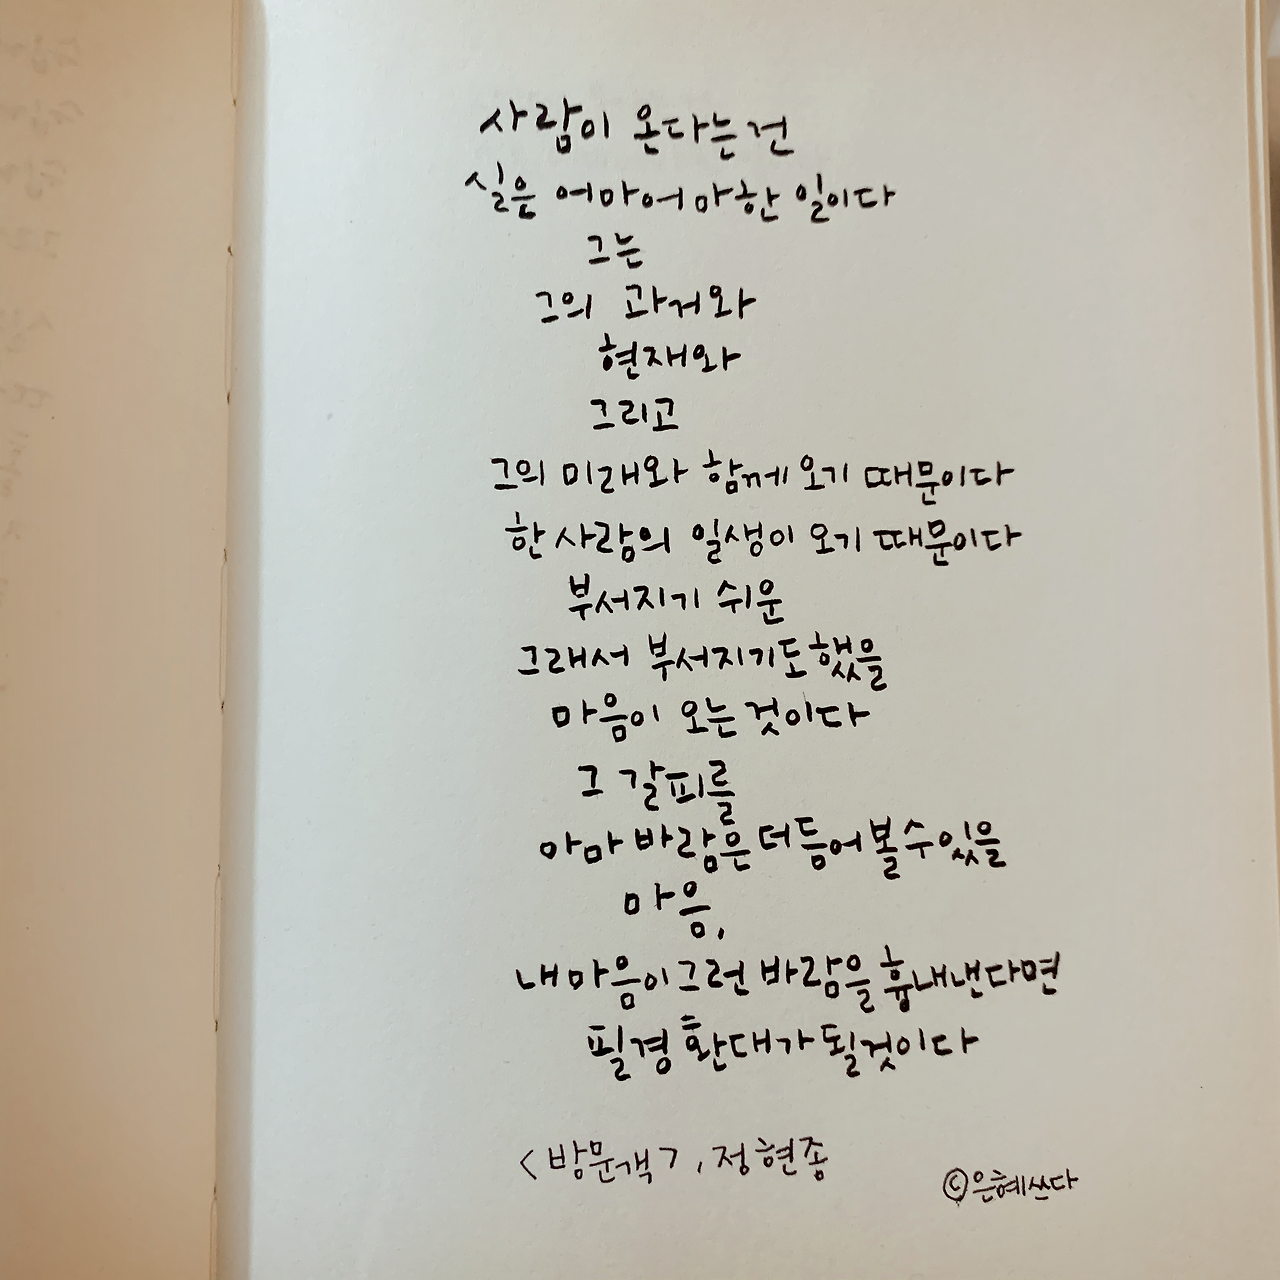 사람이 온다는건
실은 어마어마한 일이다
그는
그의 과거와
현재와
그리고
그의 미래와 함께 오기 때문이다
한 사람의 일생이 오기 때문이다
부서지기 쉬운
그래서 부서지기도했을
마음이 오는것이다
그 갈피를
아마 바람은 더듬어 볼수있을
마음,
내마음이그런 바람을 흉내낸다면
필경 환대가 될것이다
<방문객>, 정현종
©은혜쓰다